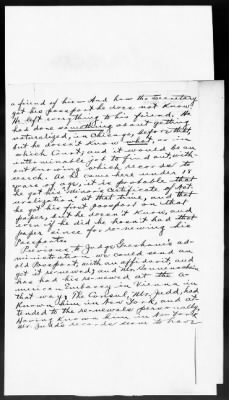 a friend of his and how the Secretary
got his passport he does not know.
He left everything to his friend. He
had done something about getting
naturalized, in Chicago, before that,
but he doesn't know what, or in
which Court, and it would be an
interminable job to find out, with-
out knowing which records to
search. As he came here under 18
years of age, it is probable that
he got his "Minor Certificate of Nat-
uralization" at that time, and that
he got his first passport on that
paper, but he doesn't know, and
even if he did he hasn't had that
paper since for re-newing his
Passports.
Previous to Judge Gresham's ad-
ministration we could send an
old Passport, with an affidavit, and
get it re-newed; and Mr.
has had his re-newed at the A-
merican Embassy in Vienna in
that way. The Consul, Mr. Judd, had
known him in New York, and at-
tended to the re-newals personally,
Having known him in New York
Mr. Judd's records seem to have